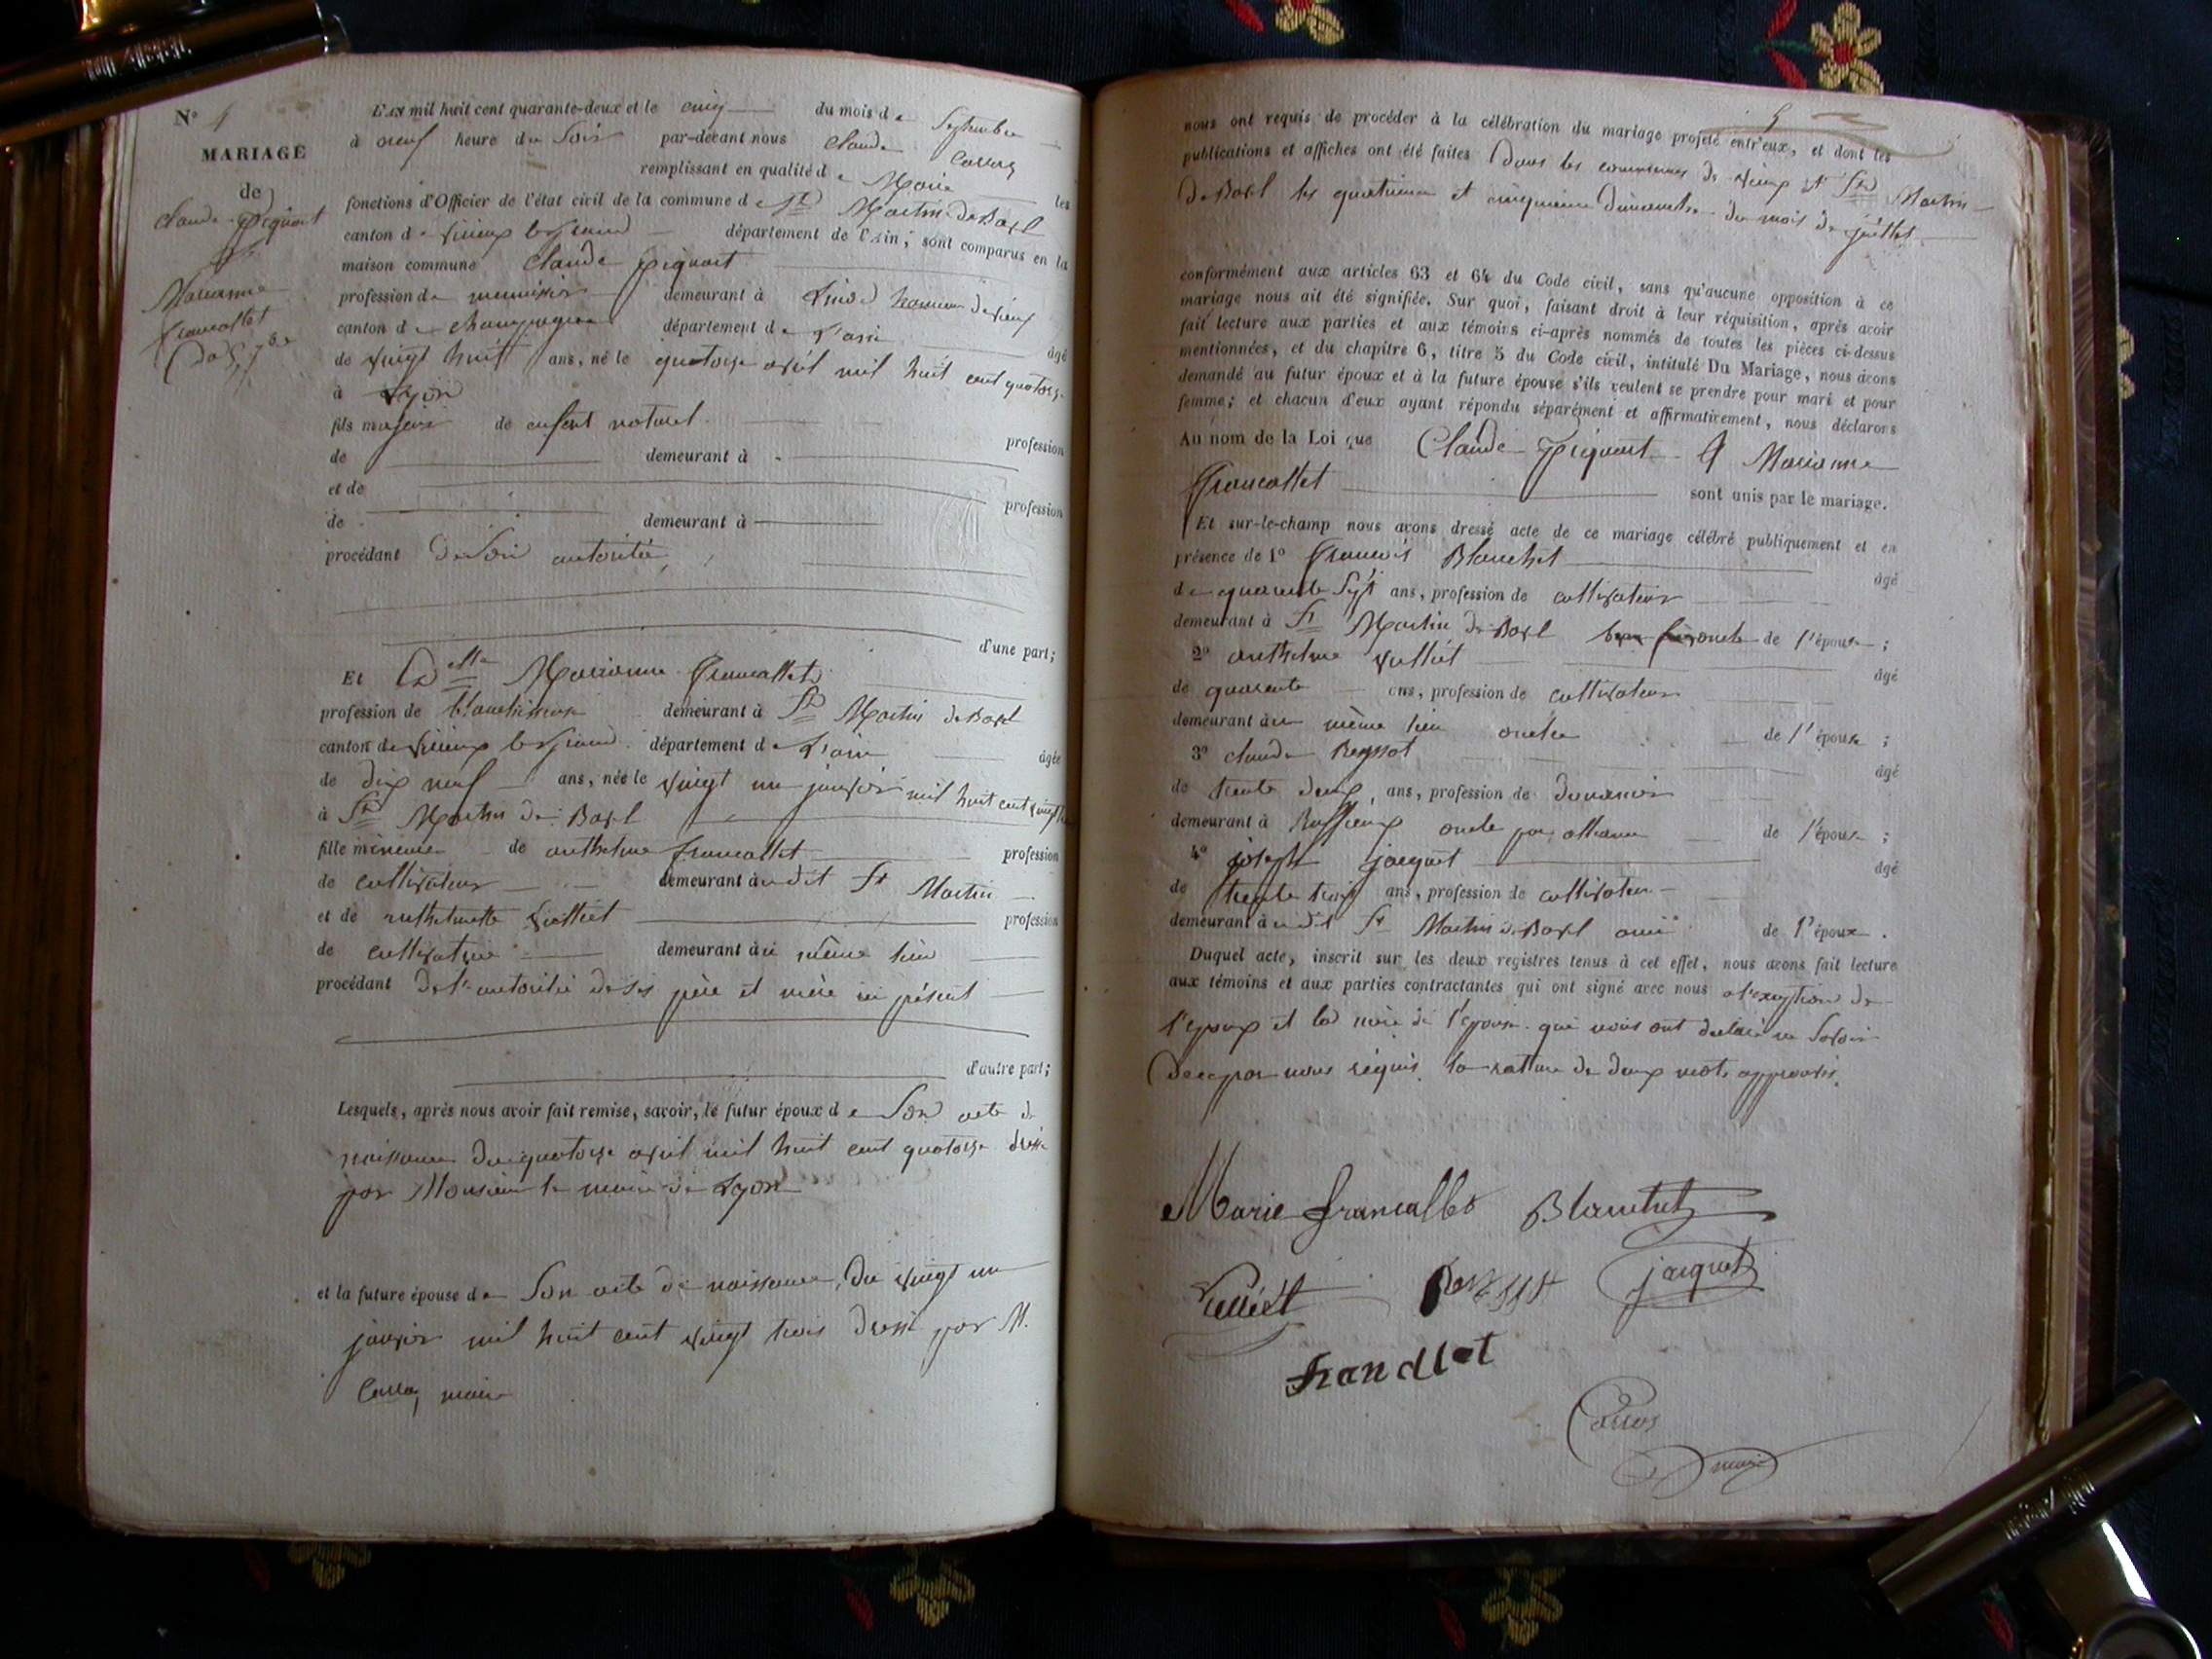 N° 4
MARIAGE
de
Claude piquart
et
Marianne
francallet
Du 5 7bre
L'AN mil huit cent quarante-deux et le cinq du mois de Septembre
à neuf heure du Soir par-devant nous Claude
remplissant en qualité de Maire les
fonctions d'Officier de l'état civil de la commune de St Martin de Bavel
canton de virieux le grand département de l'Ain; sont comparus en la
maison commune Claude piquart
profession de menuisier demeurant à hameau de vieux
canton de champagne département de L'ain âgé
de vingt huit ans, né le quatorze avril mil huit cent quatorze
à Lyon
fils majeur de enfant naturel
profession
de demeurant à
et de
profession
de demeurant à
procédant de Son autorité
d'une part;
Et Delle Marianne francallet
profession de blanchisseuse demeurant à St Martin de Bavel
canton de virieux le grand département de L'ain âgée
de dix neuf ans, née le vingt un janvier mil huit cent vingt
à St Martin de Bavel
fille mineure de anthelme francallet profession
de cultivateur demeurant audit St Martin
et de anthelmette vulliet profession
de cultivatrice demeurant au même lieu
procédant de l'autorité de ses père et mère ici présent
d'autre part;
Lesquels, après nous avoir fait remise, savoir, le futur époux de Son acte de
naissance du quatorze avril mil huit cent quatorze dressé
par Monsieur le maire de Lyon
et la future épouse de Son acte de naissance, du vingt un
janvier mil huit cent vingt trois dressé par M.
maire
5
nous ont requis de procéder à la célébration du mariage projeté entr'eux, et dont les
publications et affiches ont été faites Dans les communes de vieux et St Martin
de Bavel les quatrieme et cinquieme dimanche du mois de juillet
conformément aux articles 63 et 64 du Code civil, sans qu'aucune opposition à ce
mariage nous ait été signifiée. Sur quoi, faisant droit à leur réquisition, après avoir
fait lecture aux parties et aux témoins ci-après nommés de toutes les pièces ci-dessus
mentionnées, et du chapitre 6, titre 5 du Code civil, intitulé Du Mariage, nous avons
demandé au futur époux et à la future épouse s'ils veulent se prendre pour mari et pour
femme; et chacun d'eux ayant répondu séparément et affirmativement, nous déclarons
Au nom de la Loi que Claude piquart et Marianne
francallet sont unis par le mariage.
Et sur-le-champ nous avons dressé acte de ce mariage célébré publiquement et en
présence de 1° francois Blanchet âgé
de quarente Sept ans, profession de cultivateur
demeurant à St Martin de Bavel oncle de l'épouse;
2° anthelme vulliet âgé
de quarente ans, profession de cultivateur
demeurant au même lieu oncle de l'épouse;
3° claude Reyssot âgé
de trente deux ans, profession de douanier
demeurant à Ruffieux oncle par alliance de l'épouse;
4° joseph jacquet âgé
de trente trois ans, profession de cultivateur
demeurant audit St Martin de Bavel ami de l'époux.
Duquel acte, inscrit sur les deux registres tenus à cet effet, nous avons fait lecture
aux témoins et aux parties contractantes qui ont signé avec nous a l'exeption de
l'epoux et la mère de l'épouse qui nous ont declaré ne Savoir
de ce par nous requis la rature de deux mots approuvés.
Marie francallet Blanchet
Vulliet jacquet
maire